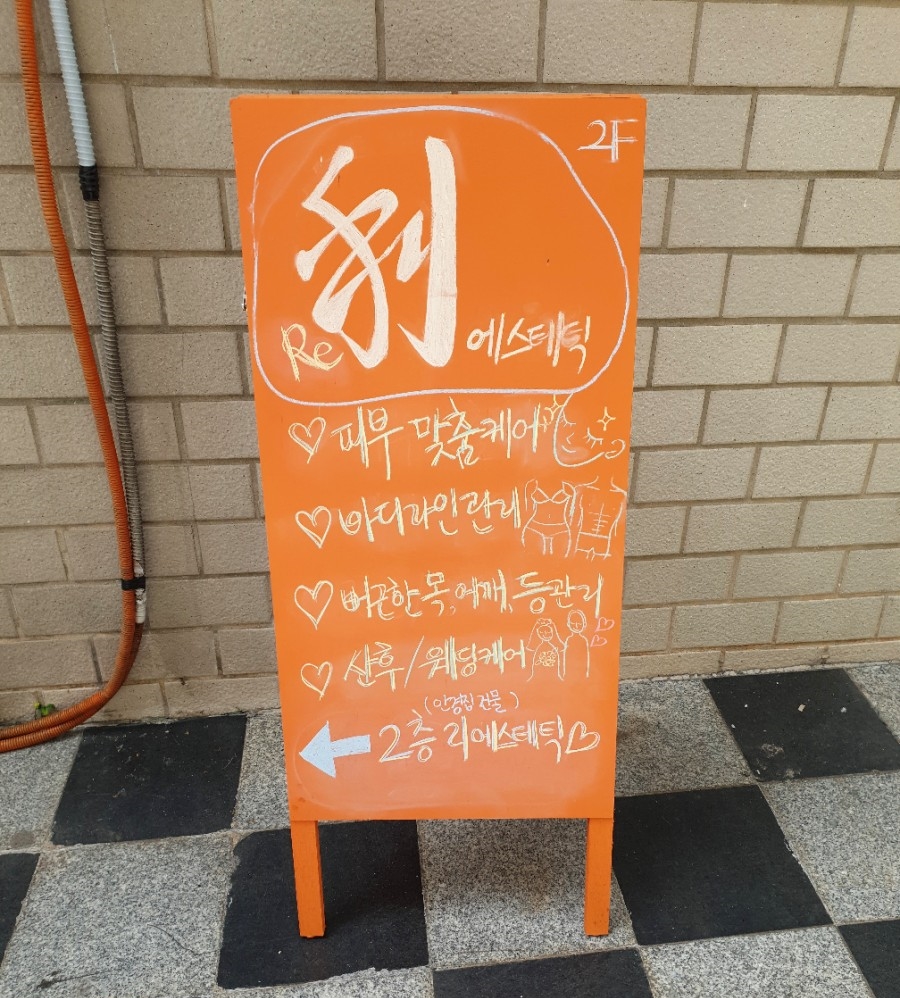 2F
利
Re 에스테틱
♡ 피부 맞춤케어
♡ 바디라인관리
♡ 뻐근한 목, 어깨, 등관리
♡ 산후/웨딩케어
(안경집 건물)
← 2층 리에스테틱♡